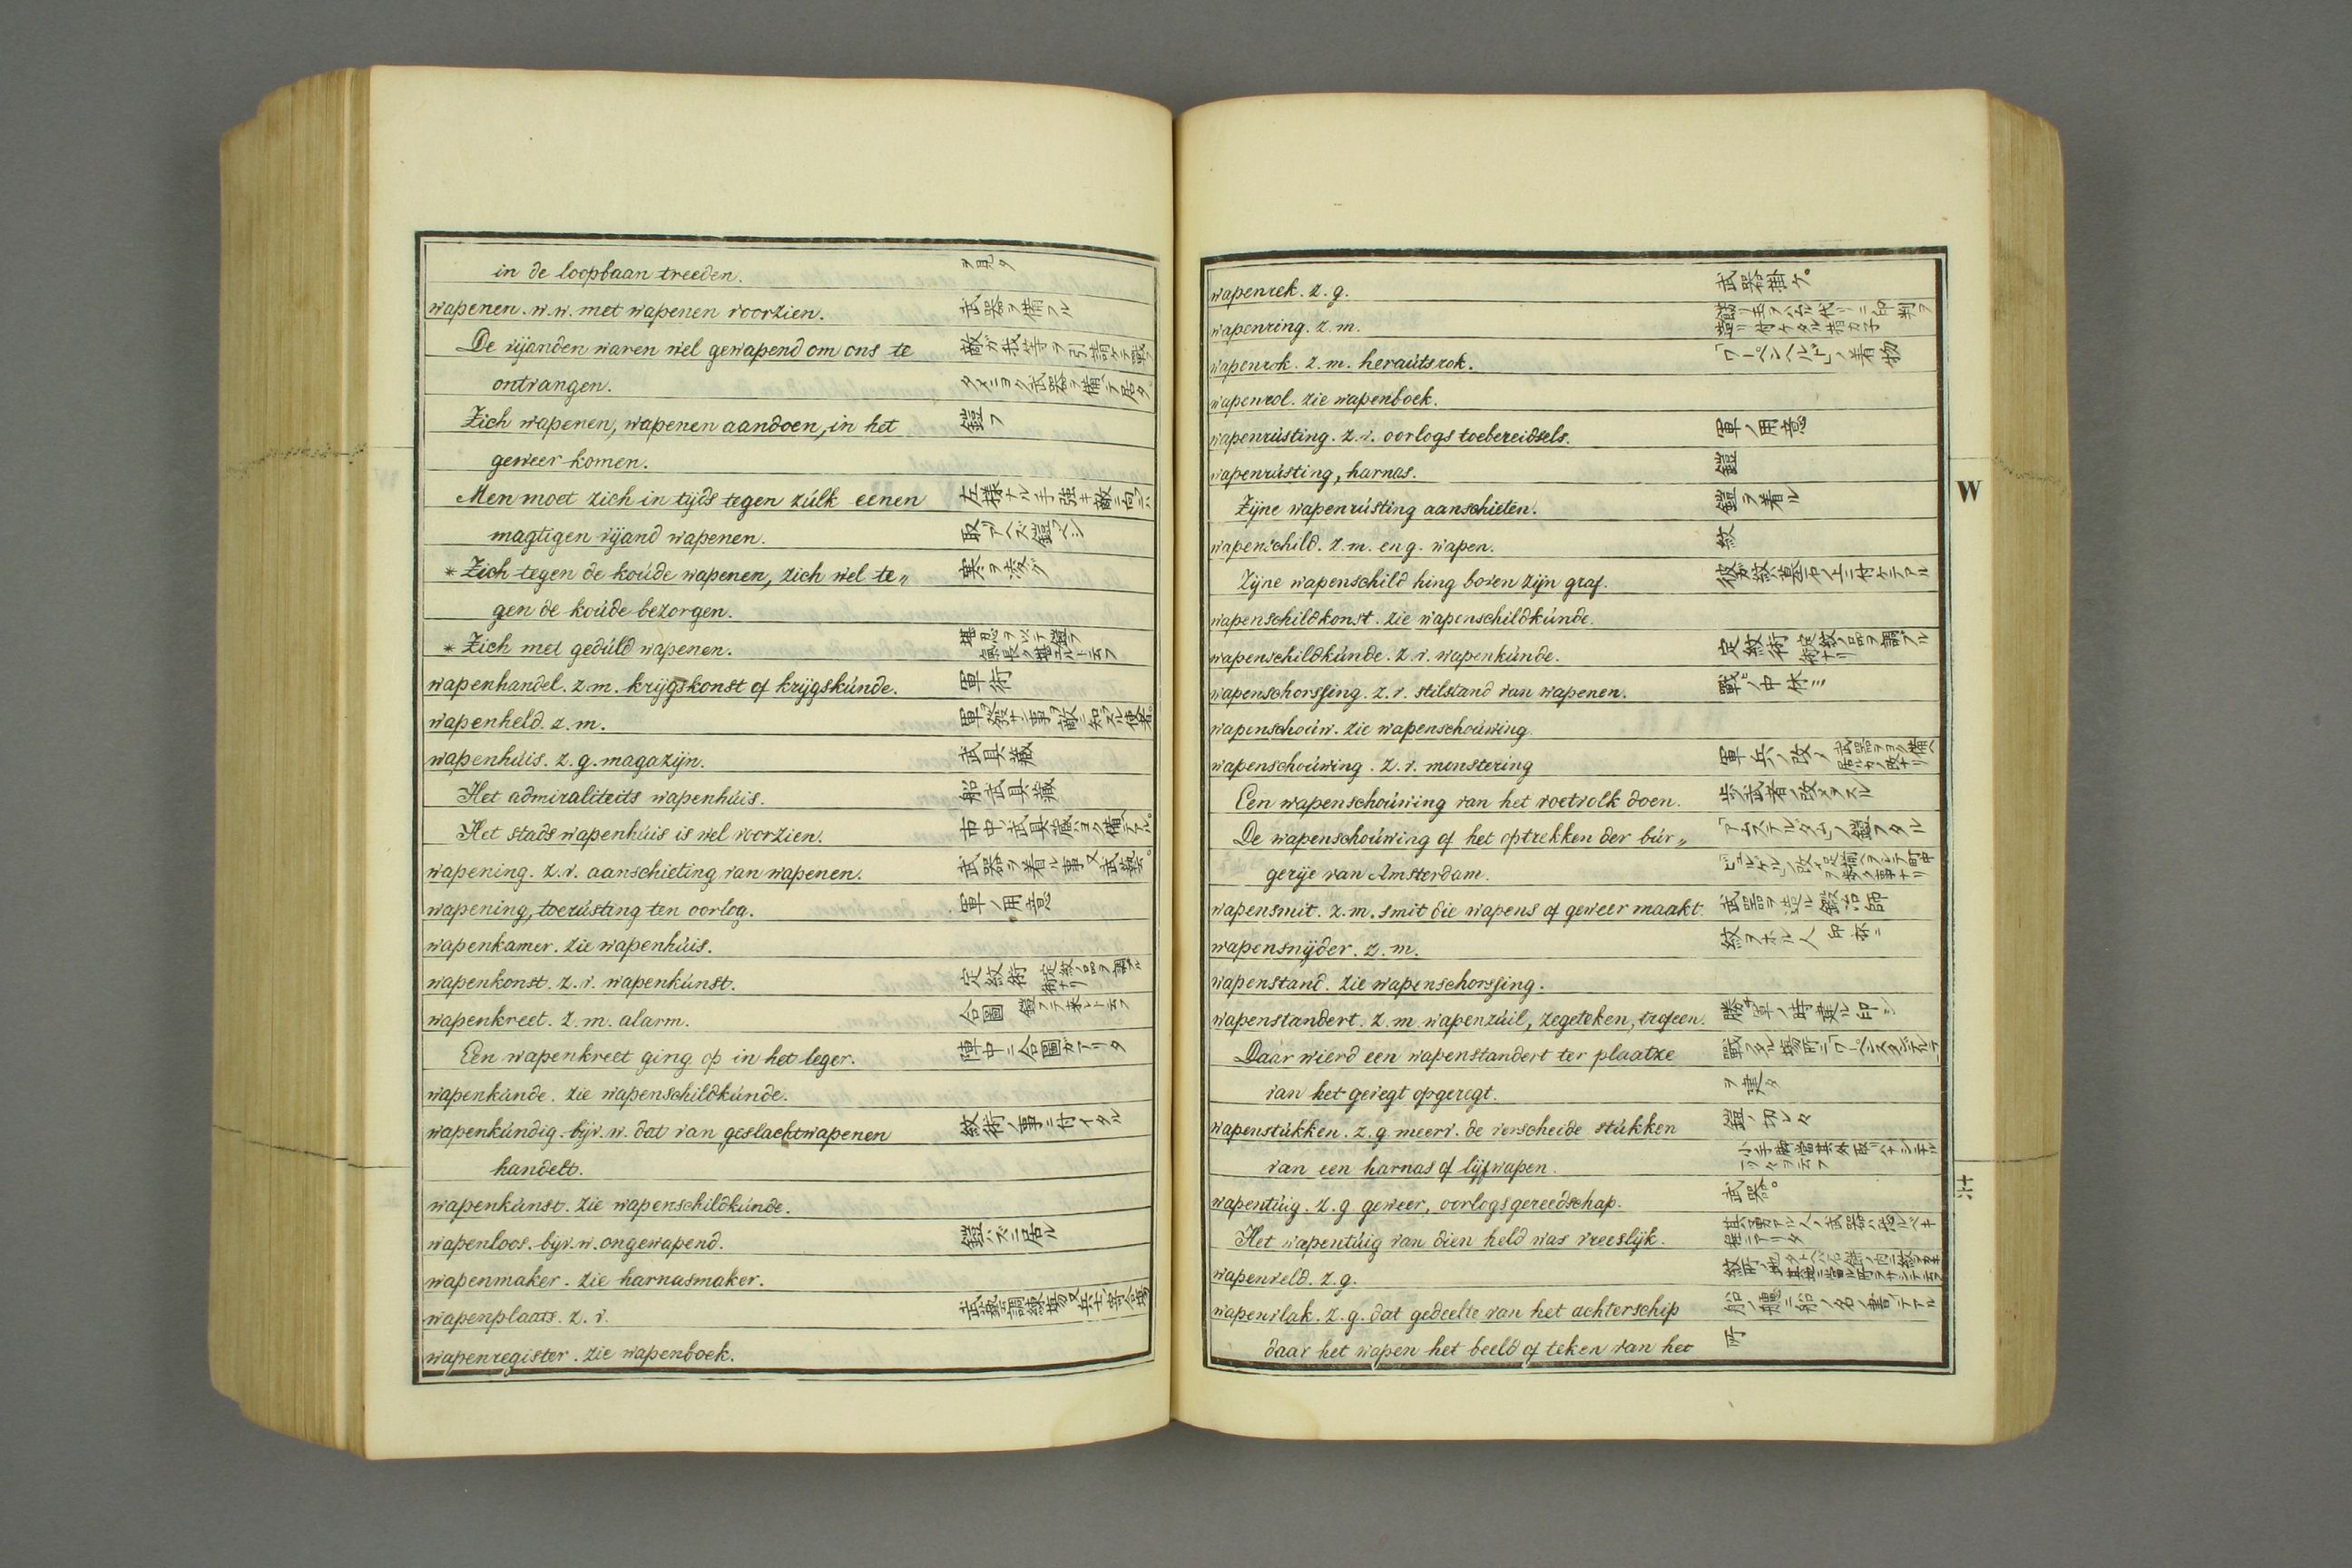 in de loopbaan treeden. ヲ見タ
wapenen. w. w. met wapenen voorzien. 武器ヲ備フル
De vijanden waren wel gewapend om ons te 敵ガ我等ヲ引請ケテ戦フ
ontvangen. タメニヨク武器ヲ備ヘテ居タ。
Zich wapenen, wapenen aandoen, in het 鎧フ
geweer komen.
Men moet zich in tijds tegen zúlk eenen 左様ナル手強キ敵ニ向ニハ
magtigen vijand wapenen. 取アヘズ鎧ベシ
* Zich tegen de koúde wapenen, zich wel te„ 寒ヲ凌グ
gen de koúde bezorgen.
* Zich met gedúld wapenen. 堪忍ヲ以テ鎧フ
wapenhandel. z. m. krijgskonst of krijgskúnde. 軍術
wapenheld. z. m.
wapenhúis. z. g. magazijn. 武具藏
Het admiraliteits wapenhúis. 船武具藏
Het stads wapenhúis is wel voorzien. 市中ノ武具藏ハヨク備ヘテアル。
wapening. z. v. aanschieting van wapenen. 武器ヲ着ル事又武藝。
wapening, toerústing ten oorlog. 軍ノ用意
wapenkamer. zie wapenhúis.
wapenkonst. z. v. wapenkúnst. 定紋術 定紋ノ品ヲ調ブル術ナリ
wapenkreet. z. m. alarm. 合圖 鎧フテ来レト云フ
Een wapenkreet ging op in het leger. 陣中ニ合圖ガアリタ
wapenkúnde. zie wapenschildkúnde.
wapenkúndig. bijv. w. dat van geslachtwapenen 紋術ノ事ニ付イタル
handelt.
wapenkúnst. zie wapenschildkúnde.
wapenloos. bijv. w. ongewapend. 鎧ハズニ居ル
wapenmaker. zie harnasmaker.
wapenplaats. z. v. 武藝調練場又兵士ノ寄合場
wapenregister. zie wapenboek.
wapenrek. z. g. 武器掛ケ。
wapenring. z. m.
wapenrok. z. m. heraútsrok. 「ワーペンヘルド」ノ着物
wapenrol. zie wapenboek.
wapenrústing. z. v. oorlogs toebereidsels. 軍ノ用意
wapenrústing, harnas. 鎧
Zijne wapenrústing aanschieten. 鎧ヲ着ル
wapenschild. z. m. en g. wapen. 紋
Zijne wapenschild hing boven zijn graf. 彼ガ紋ハ墓所ノ上ニ付ケテアル
wapenschildkonst. zie wapenschildkúnde.
wapenschildkúnde. z. v. wapenkúnde. 定紋術 定紋ノ品ヲ調ブル術ナリ
wapenschorssing. z. v. stilstand van wapenen. 戰ヒノ中休ミ
wapenschoúw. zie wapenschoúwing.
wapenschoúwing. z. v. monstering 軍兵ノ改ノ 武器ヲヨク備ヘ居ルカノ改ナリ
Een wapenschoúwing van het voetvolk doen. 歩武者ノ改メヲスル
De wapenschoúwing of het optrekken der búr„ 「アムステルダム」ノ鎧フタル
gerije van Amsterdam.
wapensmit. z. m. smit die wapens of geweer maakt. 武器ヲ造ル鍛冶師
wapensnijder. z. m. 紋ヲホル人
wapenstand. zie wapenschorssing.
wapenstandert. z. m. wapenzúil, zegeteken, trofeen. 勝軍ノ時建ル印シ
Daar wierd een wapenstandert ter plaatze
van het gevegt opgeregt. ヲ建タ
wapenstúkken. z. g. meerv. de verscheide stúkken 鎧ノ切レ々
van een harnas of lijfwapen.
wapentúig. z. g. geweer, oorlogsgereedschap. 武器。
Het wapentúig van dien held was vreeslijk.
wapenveld. z. g.
wapenvlak. z. g. dat gedeelte van het achterschip 船ノ艫ニ船ノ名ノ書テアル
daar het wapen het beeld of teken van het 所
W
十六